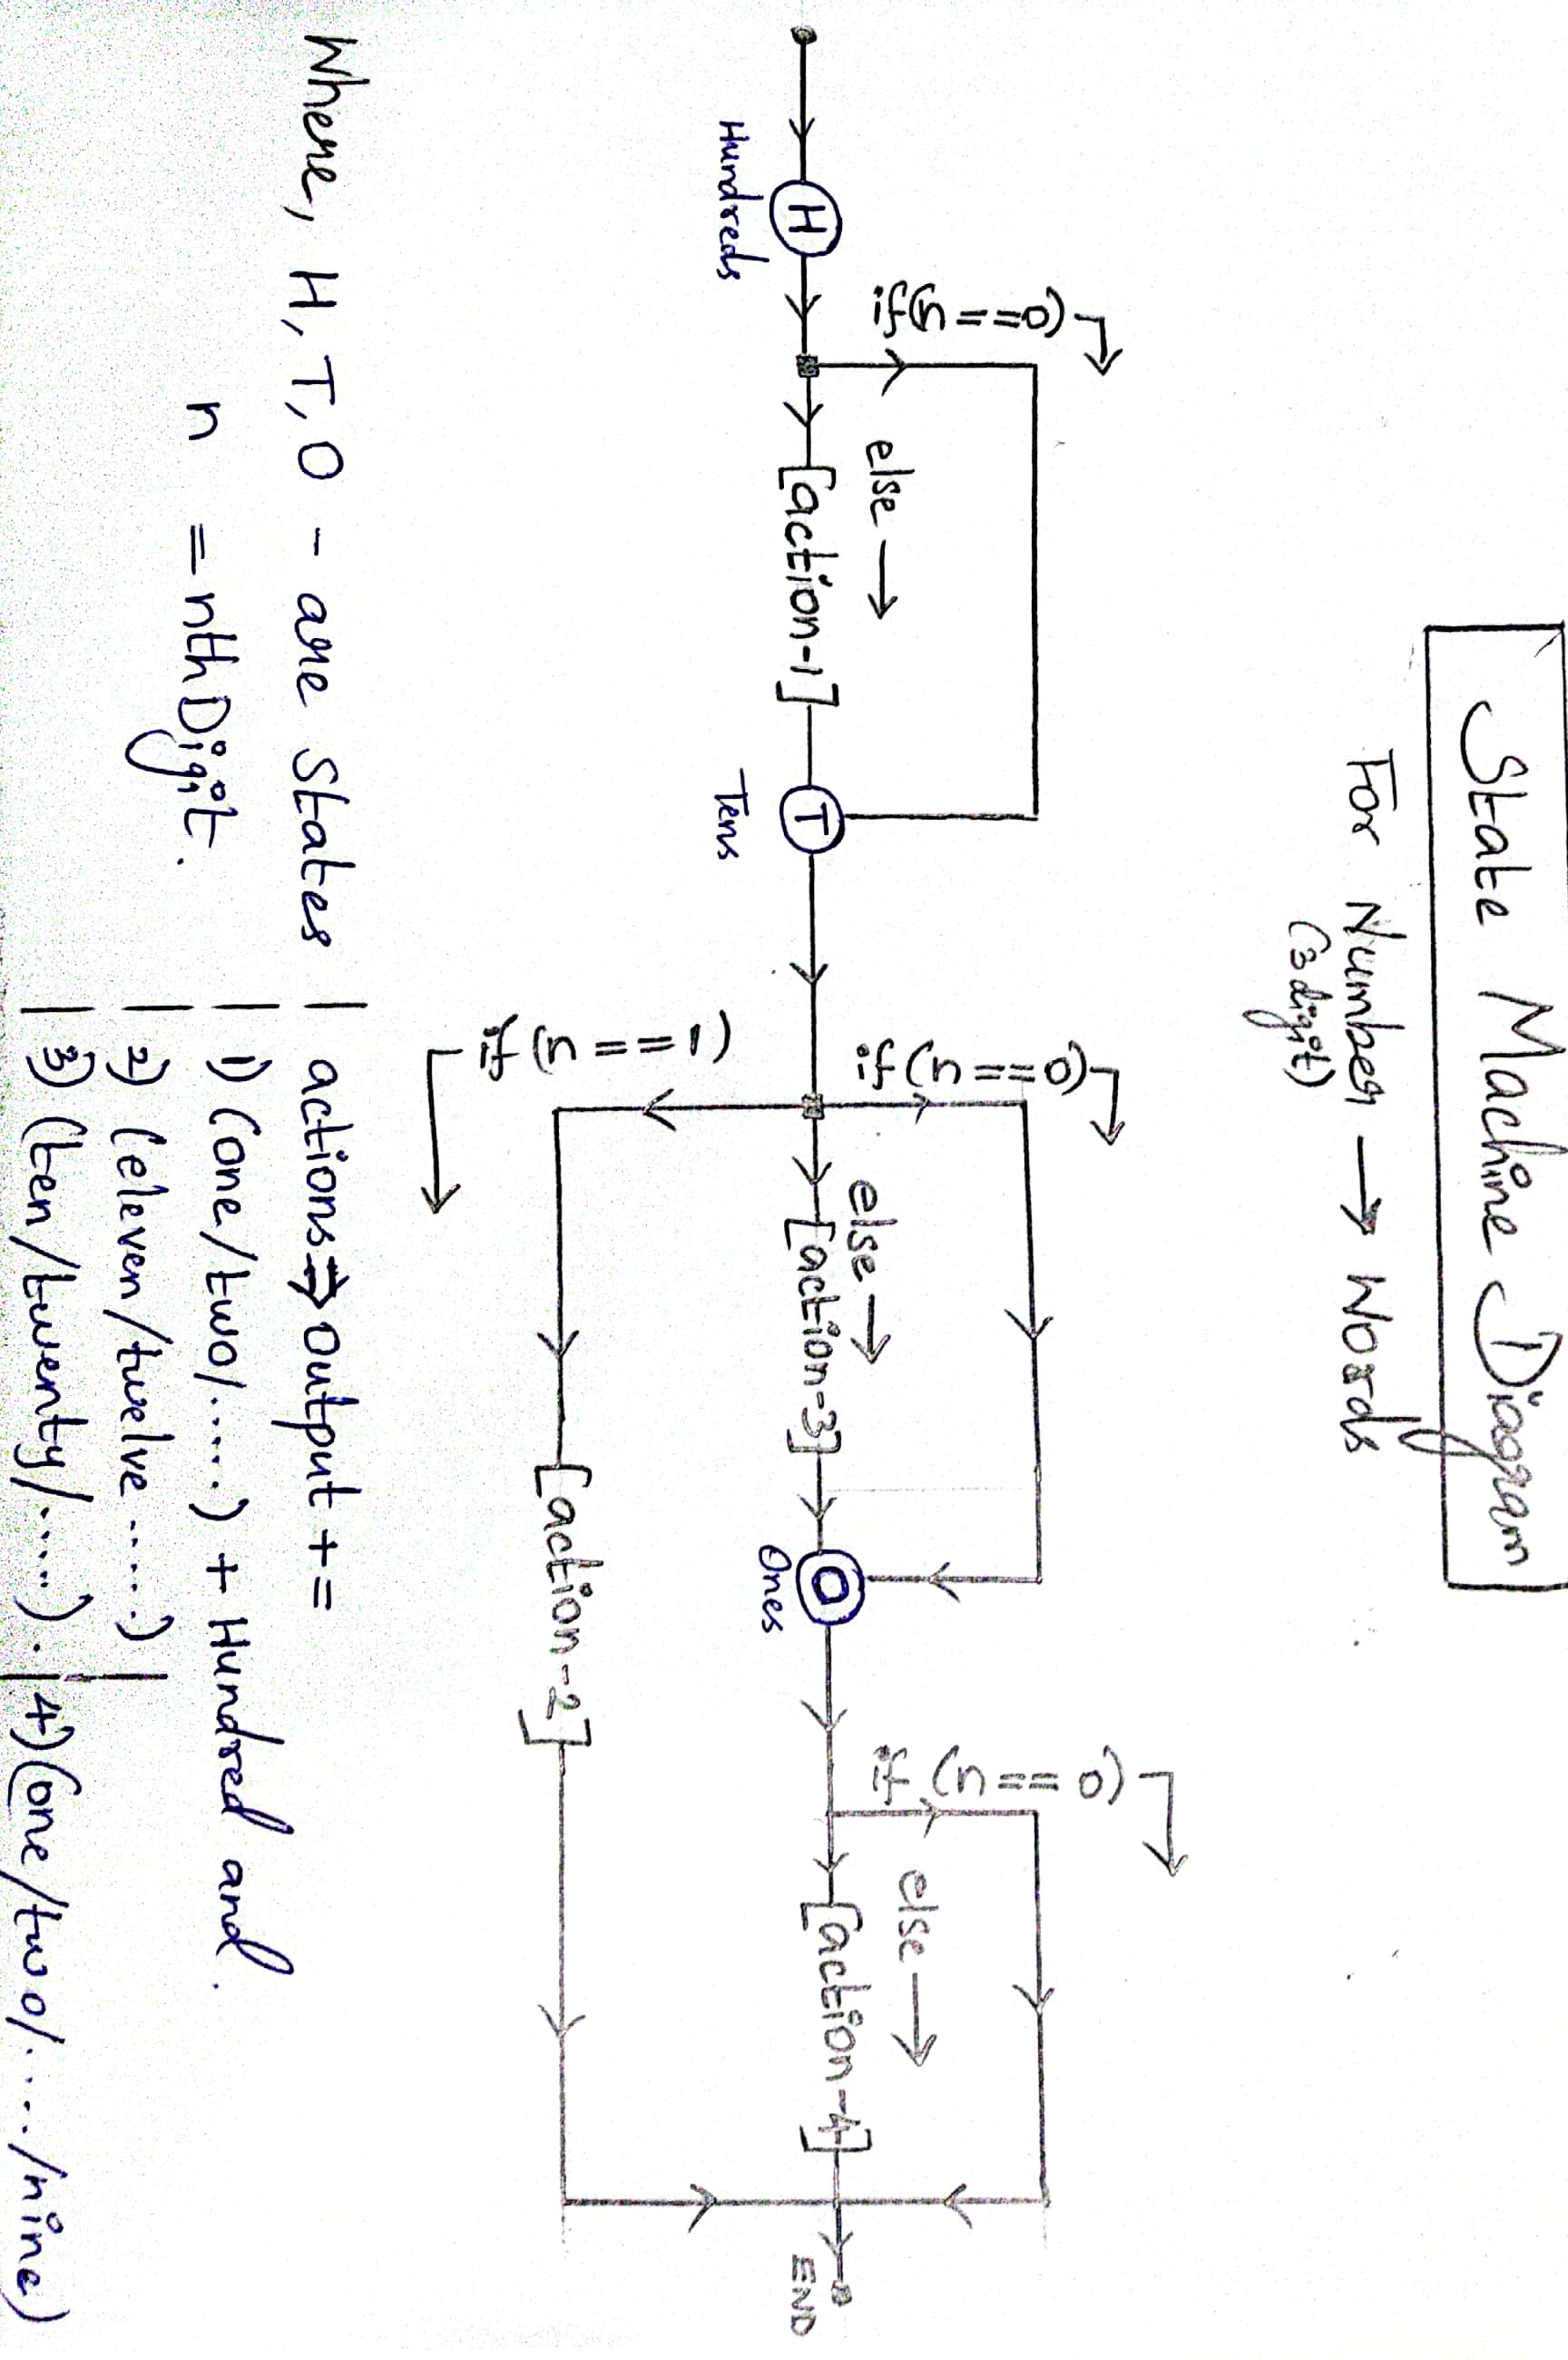 State Machine Diagram
For Number → Words
(3 digit)
if(n==0)
else →
[action-1]
H
Hundreds
T
Tens
if(n==0)
else →
[action-3]
if(n==1)
[action-2]
O
Ones
if(n==0)
else →
[action-4]
END
Where, H, T, O - are States
n = nth Digit.
actions ⇒ Output +=
1) (one/two/.....) + Hundred and.
2) (eleven/twelve .....)
3) (ten/twenty/.....).
4) (one/two/..../nine)